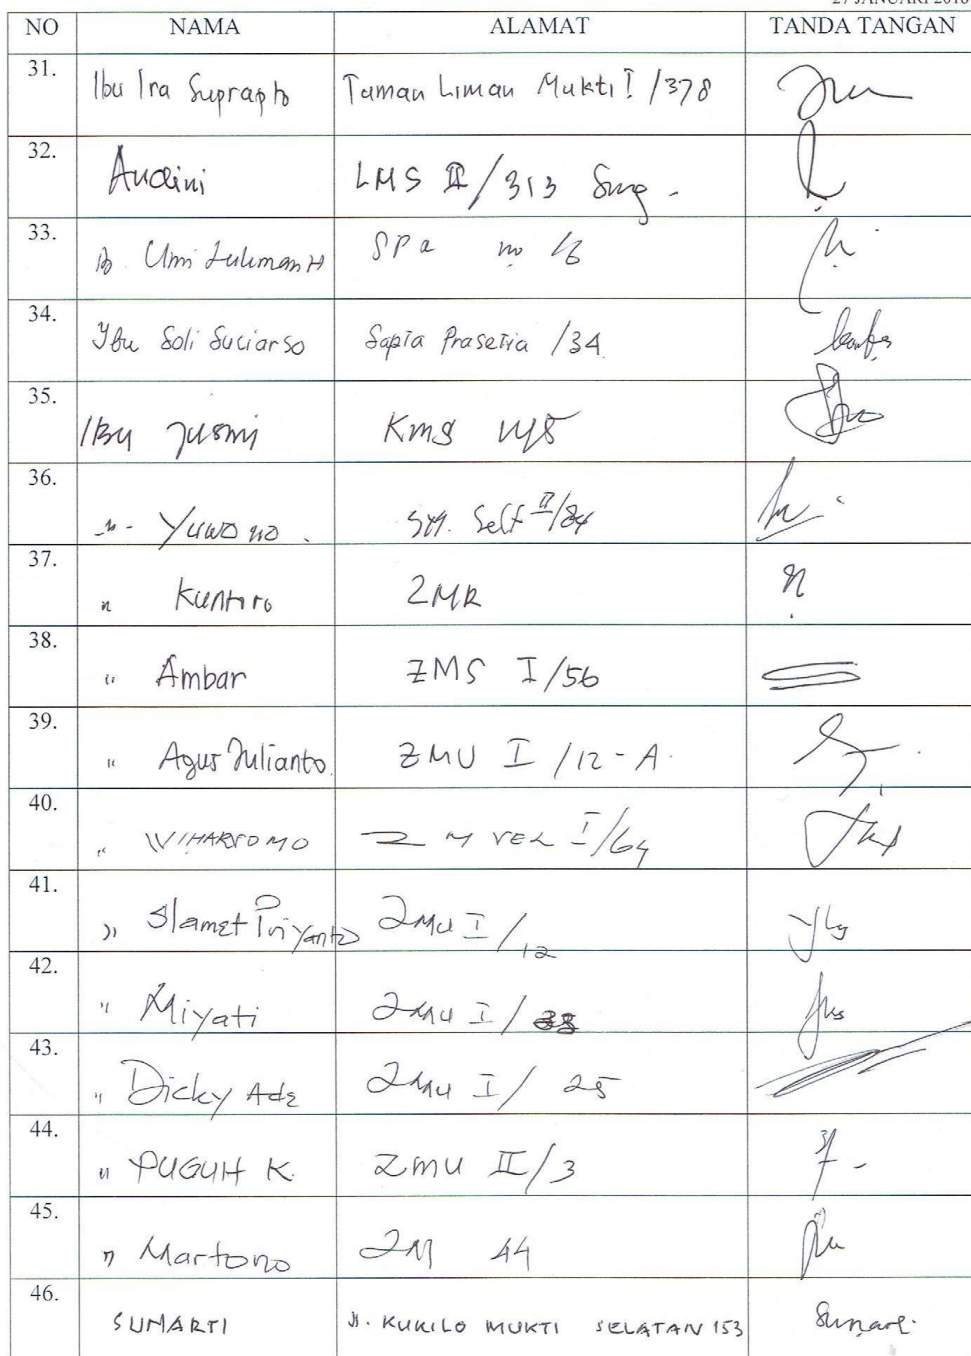 27 JANUARI 2016
NO NAMA ALAMAT TANDA TANGAN
31. Ibu Ira Suprapto Taman Liman Mukti I /378
32. Andini LMS II/313 Smg -
33. Umi Lukman H SPa no
34. Ibu Soli Suciarso Sapta Prasetia /34
35. IBU Jusmi KMS
36. -"- Yuwono. II/84
37. " Kuntoro ZMR
38. " Ambar ZMS I/56
39. " Agus Julianto ZMU I /12-A.
40. " WIHARYOMO Z M I/64
41. " Slamet Priyanto ZMU I/12
42. " Miyati ZMU I/
43. " Dicky Ade ZMU I/ 25
44. " PUGUH K. ZMU II/3
45. " Martono ZM 44
46. SUMARTI Jl. KUKILO MUKTI SELATAN 153